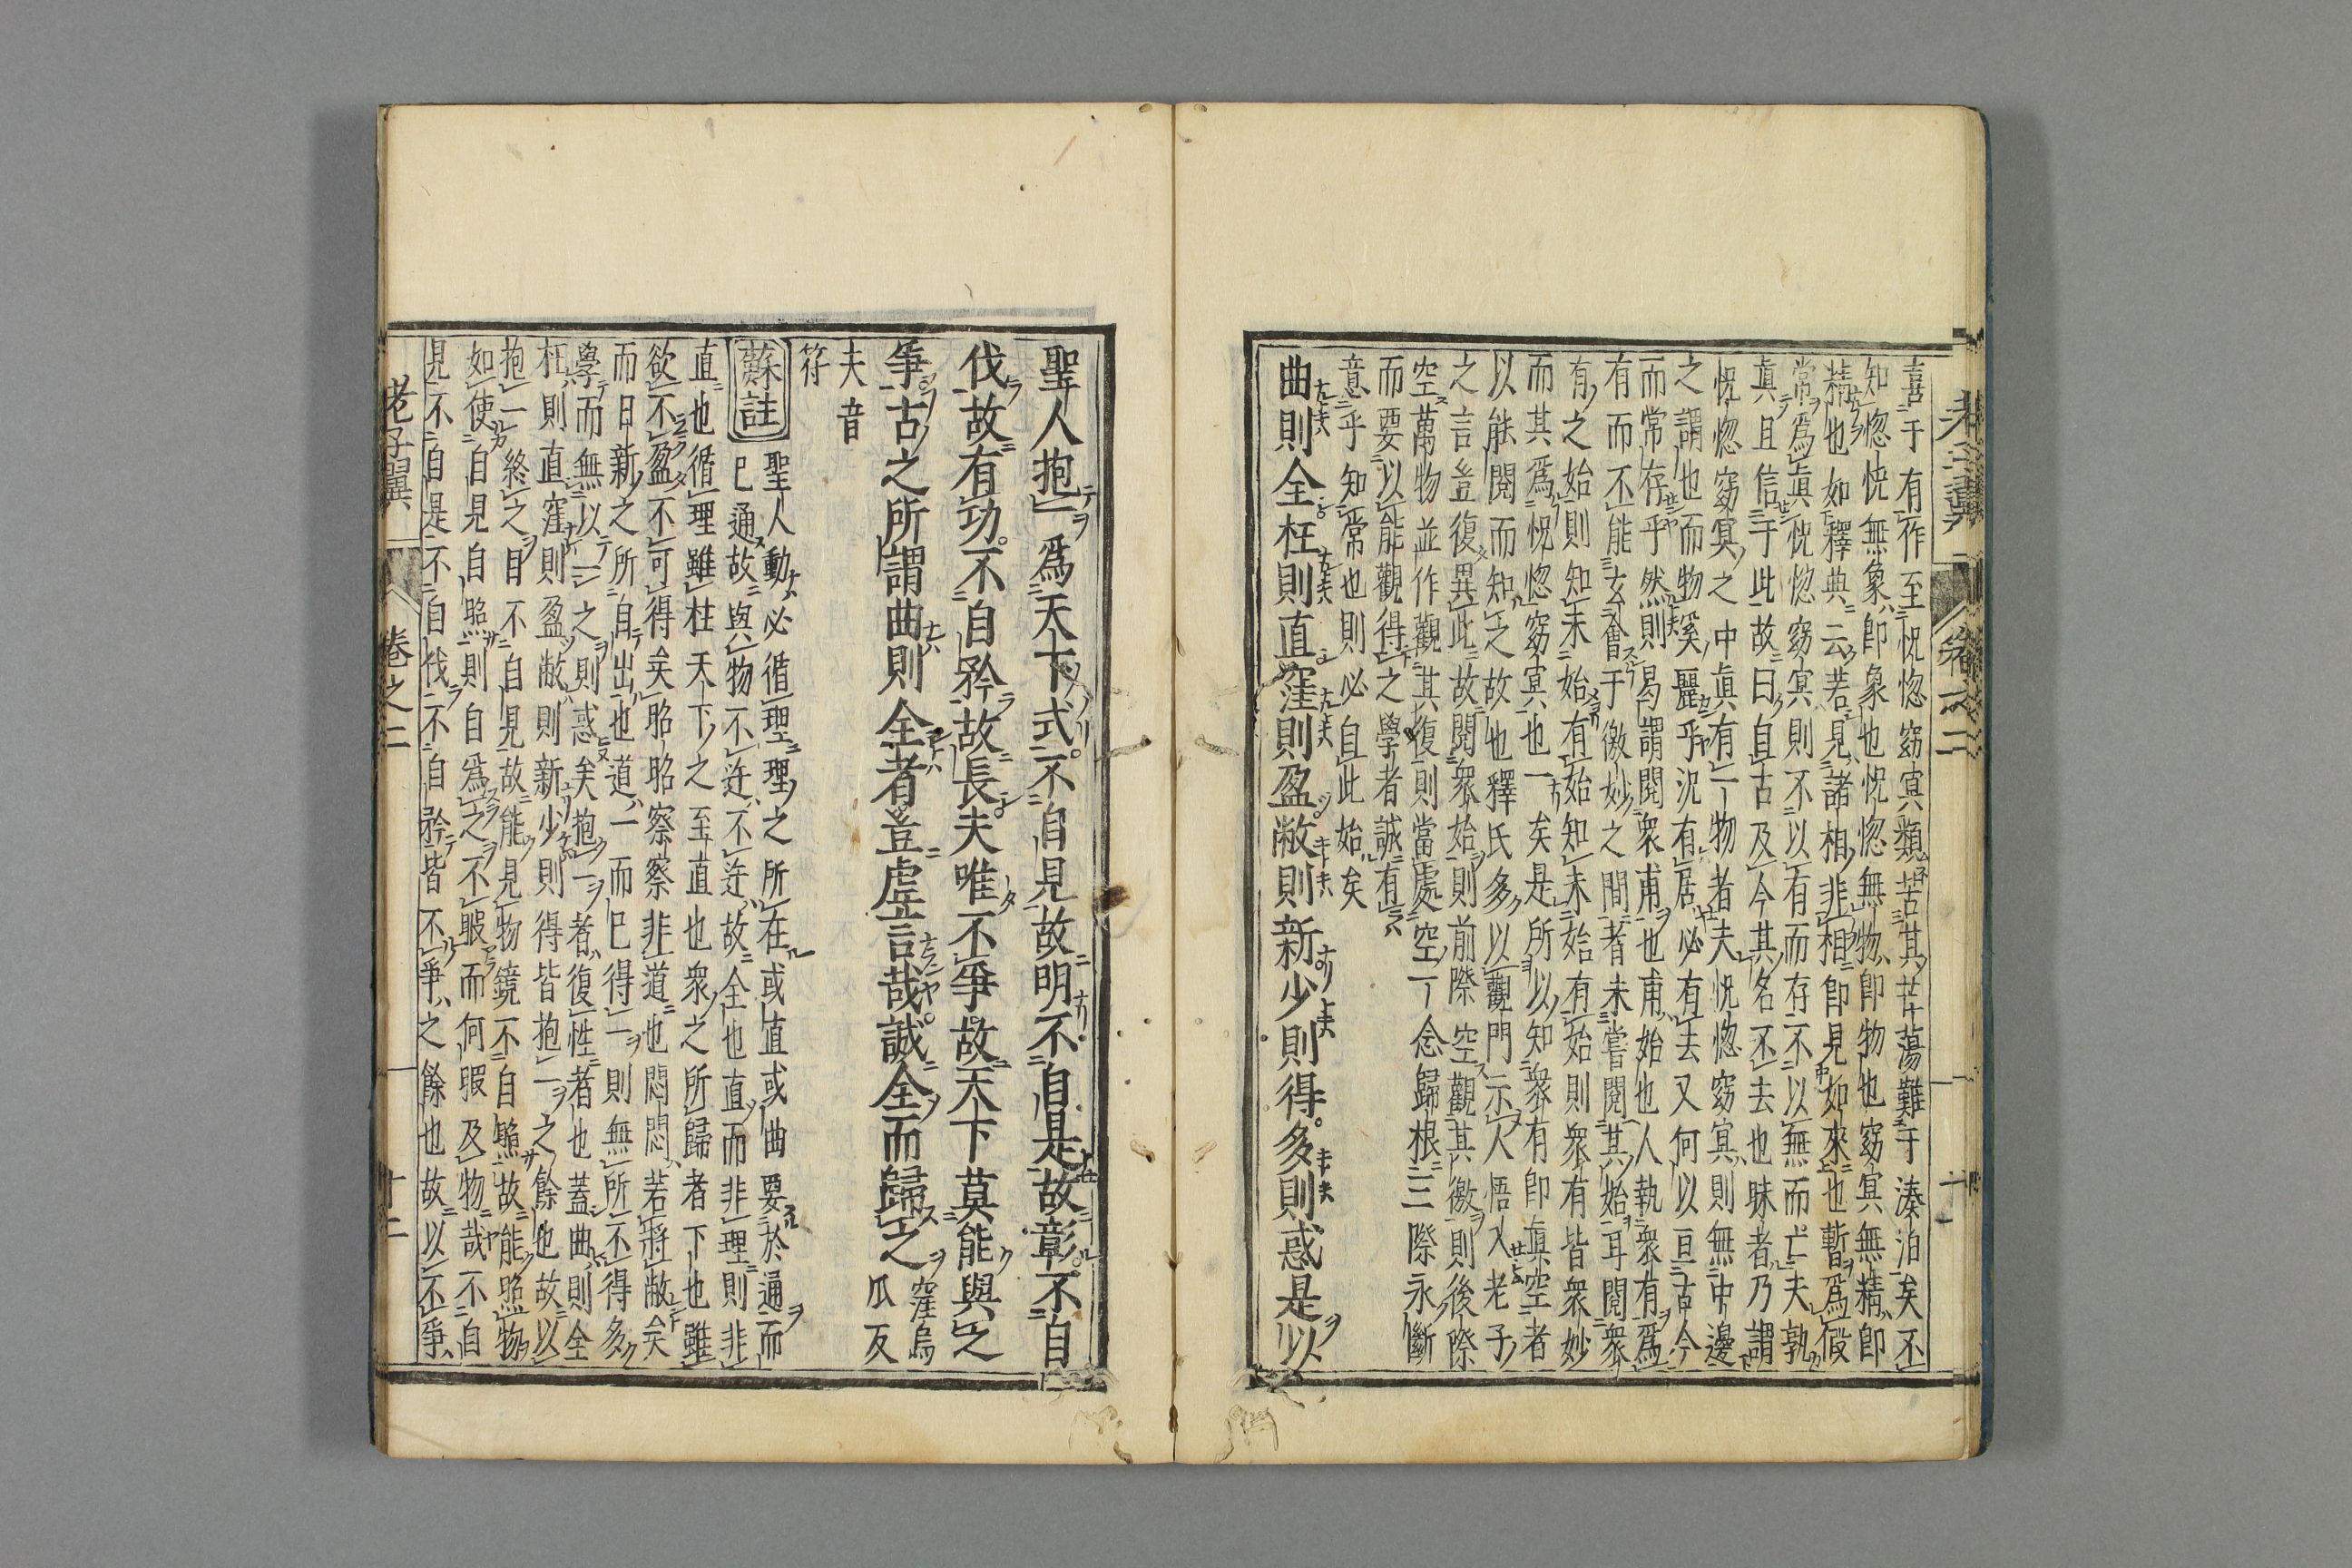 喜于有作至怳惚窈冥類苦其茫蕩難于湊泊矣不
知惚怳無象即象也怳惚無物即物也窈冥無精即
精也如釋典云若見諸相非相即見如來也暫爲假
常爲眞怳惚窈冥則不以有而存不以無而亡夫孰
眞且信于此故曰自古及今其名不去也昧者乃謂
怳惚窈冥之中眞有一物者夫怳惚窈冥則無中邊
之謂也而物奚麗乎況有居必有去又何以亘古今
而常存乎然則曷謂閱衆甫也甫始也人執衆有爲
有而不能玄會于徼妙之間者未嘗閱其始耳閱衆
有之始則知未始有始知未始有始則衆有皆衆妙
而其爲怳惚窈冥也一矣是所以知衆有即眞空者
以能閱而知之故也釋氏多以觀門示人悟入老子
之言豈復異此故閱衆始則前際空觀其徼則後際
空萬物並作觀其復則當處空一念歸根三際永斷
而要以能觀得之學者誠有
意乎知常也則必自此始矣
曲則全枉則直窪則盈敝則新少則得多則惑是以
老子翼
卷之二
聖人抱一爲天下式不自見故明不自是故彰不自
伐故有功不自矜故長夫唯不爭故天下莫能與之
爭古之所謂曲則全者豈虛言哉誠全而歸之
窪烏
瓜反
夫音
符
蘇註
聖人動必循理理之所在或直或曲要於通而
已通故與物不迕不迕故全也直而非理則非
直也循理雖枉天下之至直也衆之所歸者下也雖
欲不盈不可得矣昭昭察察非道也悶悶若將敝矣
而日新之所自出也道一而已得一則無所不得多
學而無以一之則惑矣抱一者復性者也蓋曲則全
枉則直窪則盈敝則新少則得皆抱一之餘也故以
抱一終之目不自見故能見物鏡不自照故能照物
如使自見自照則自爲之不暇而何暇及物哉不自
見不自是不自伐不自矜皆不爭之餘也故以不爭
老子翼
卷之二
十二